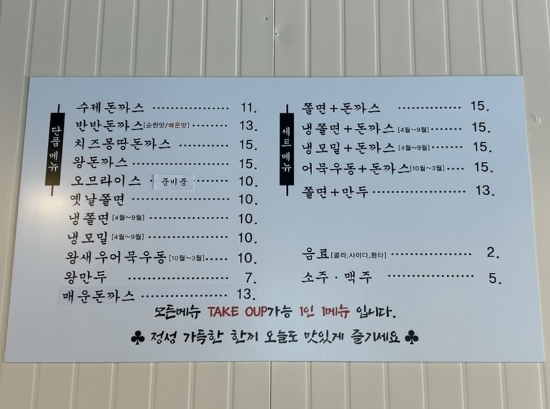 단품메뉴
수제돈까스 ············ 11.
반반돈까스[순한맛/매운맛] ······ 13.
치즈몽땅돈까스 ········ 15.
왕돈까스 ············ 15.
오므라이스 준비중 ······ 10.
옛날쫄면 ············ 10.
냉쫄면[4월~9월] ············ 10.
냉모밀[4월~9월] ············ 10.
왕새우어묵우동[10월~3월] ····· 10.
왕만두 ············ 7.
매운돈까스 ············ 13.
세트메뉴
쫄면+돈까스 ············ 15.
냉쫄면+돈까스[4월~9월] ······ 15.
냉모밀+돈까스[4월~9월] ······ 15.
어묵우동+돈까스[10월~3월] ···· 15.
쫄면+만두 ············ 13.
음료[콜라,사이다,환타] ········ 2.
소주·맥주 ············ 5.
모든메뉴 TAKE OUP가능 1인 1메뉴 입니다.
♣ 정성 가득한 한끼 오늘도 맛있게 즐기세요 ♣